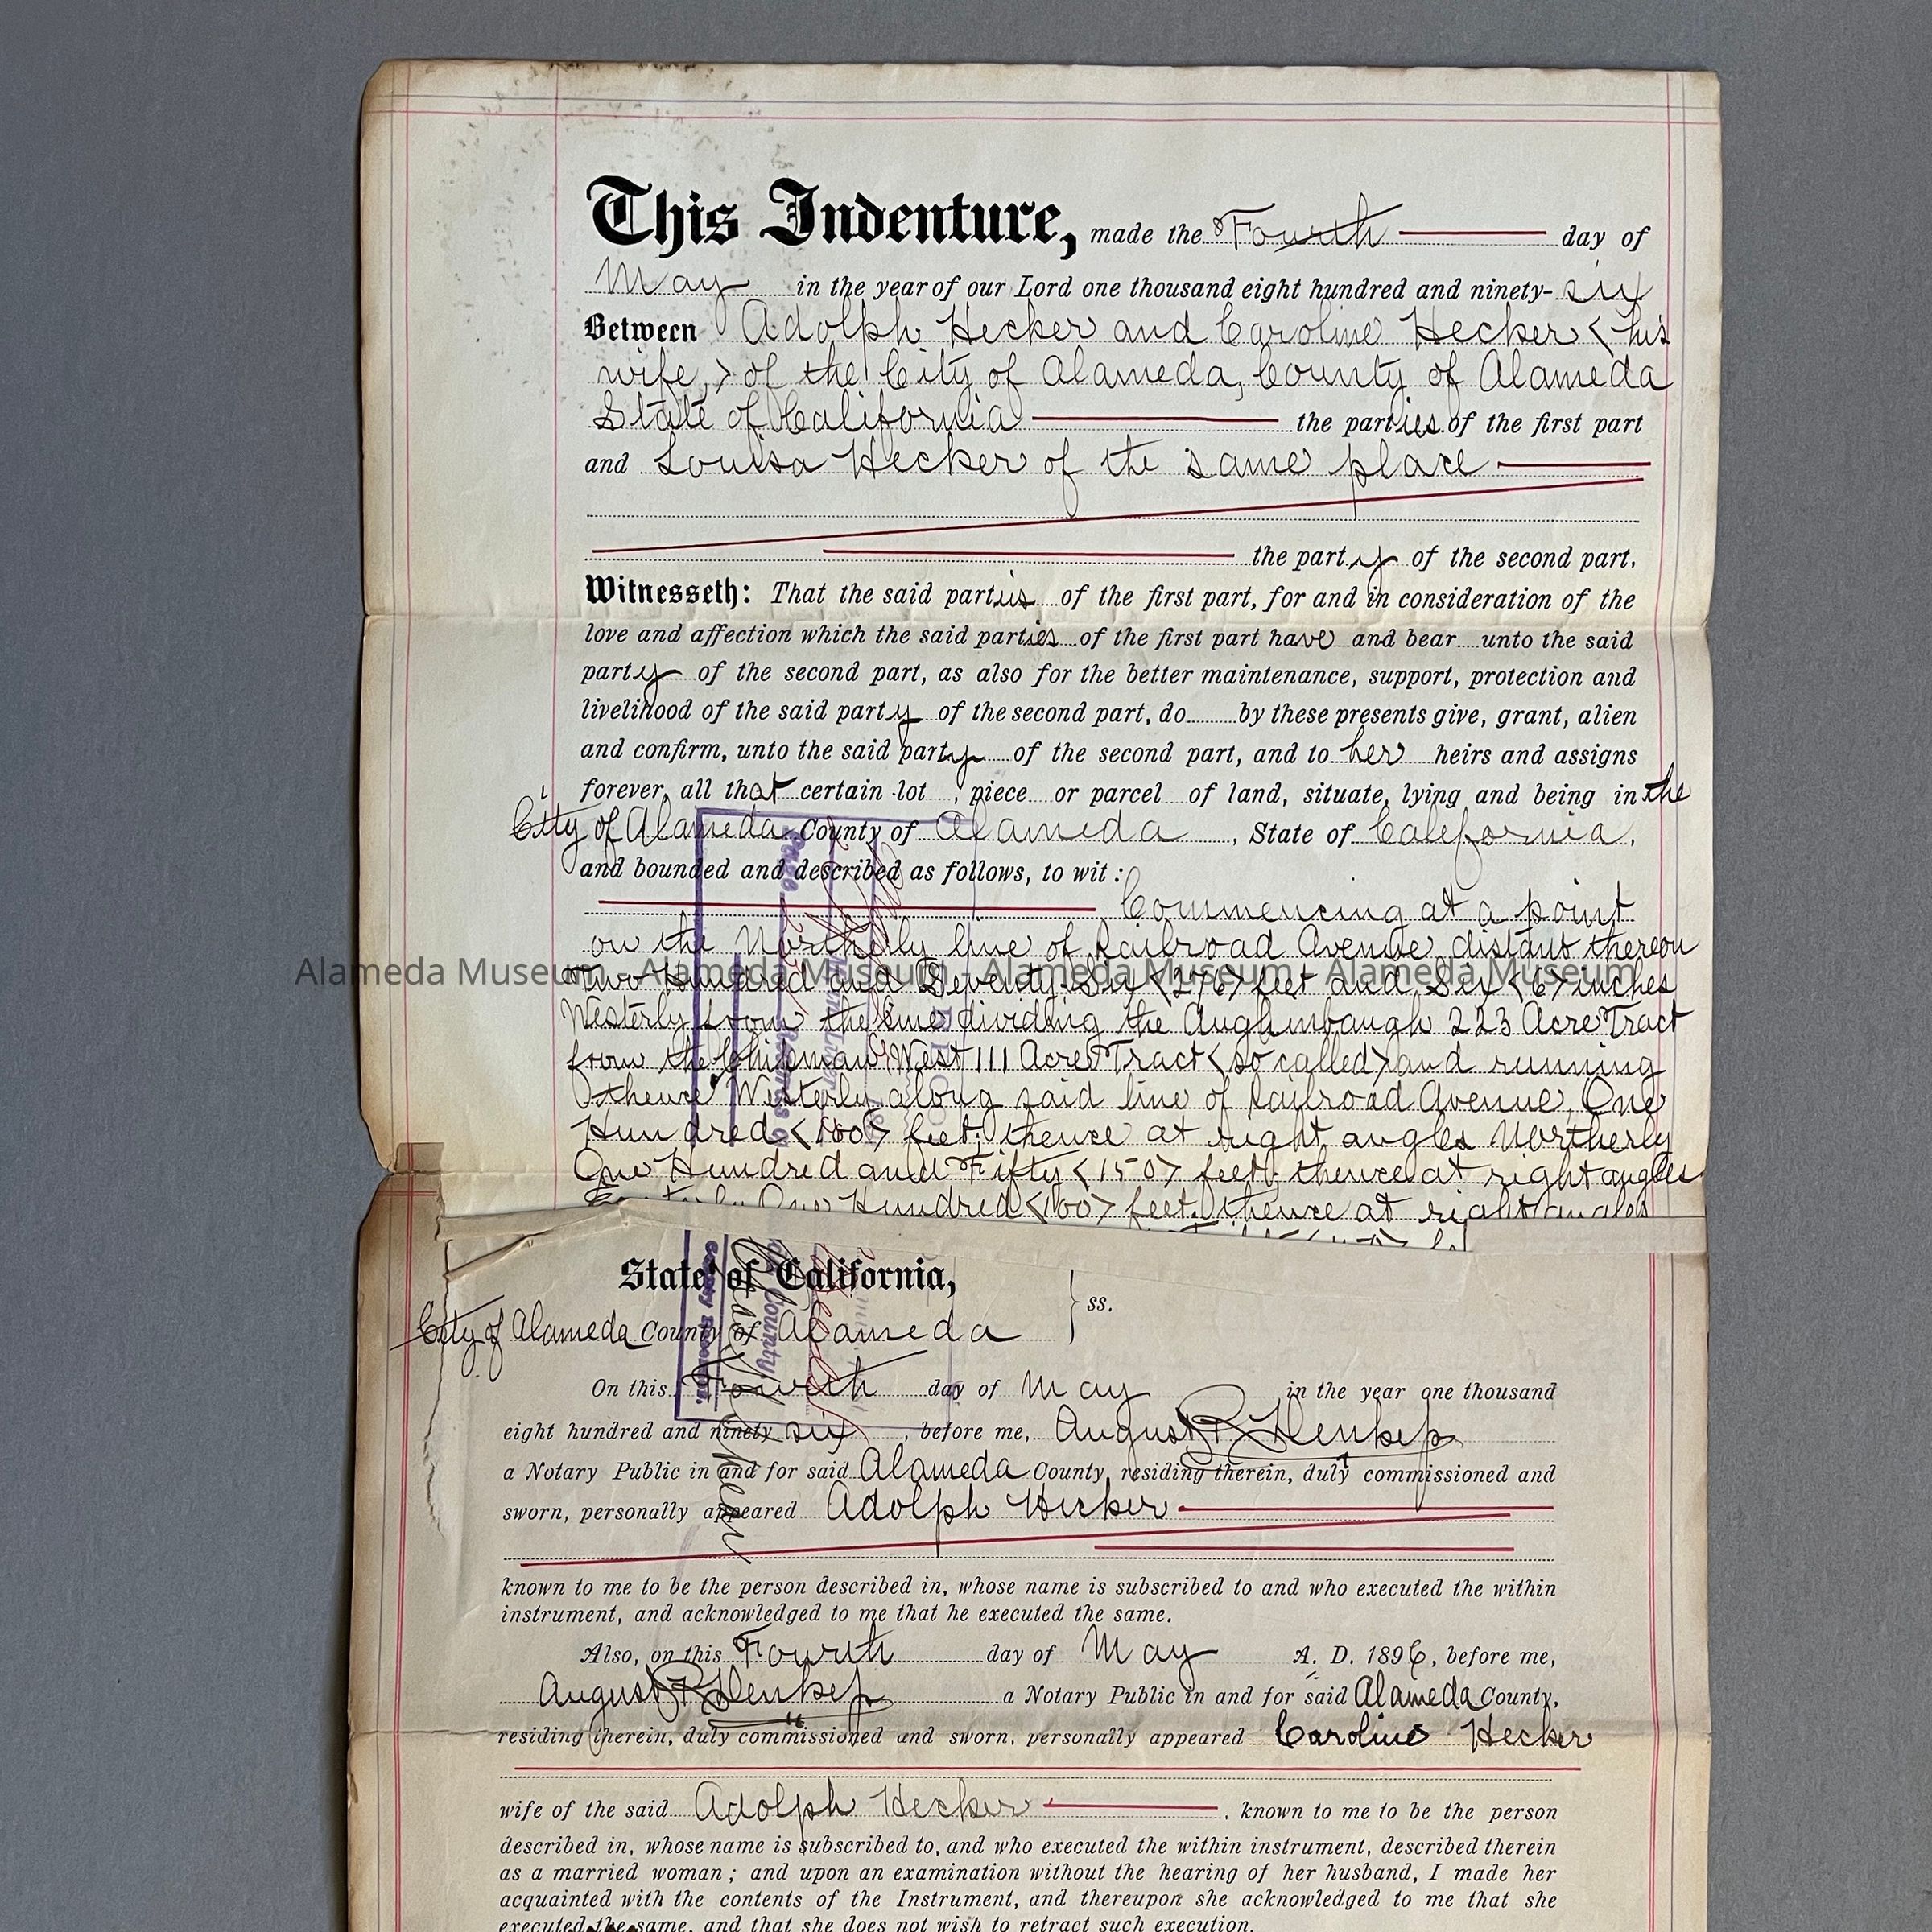 This Indenture, made the Fourth day of
May in the year of our Lord one thousand eight hundred and ninety-six
Between Adolph Hecker and Caroline Hecker <his
wife,> of the City of Alameda, County of Alameda
State of California the parties of the first part
and Louisa Hecker of the same place
the party of the second part.
Witnesseth: That the said parties of the first part, for and in consideration of the
love and affection which the said parties of the first part have and bear unto the said
party of the second part, as also for the better maintenance, support, protection and
livelihood of the said party of the second part, do by these presents give, grant, alien
and confirm, unto the said party of the second part, and to her heirs and assigns
forever, all that certain lot , piece or parcel of land, situate, lying and being in the
City of Alameda County of Alameda , State of California,
and bounded and described as follows, to wit:
Commencing at a point
on the Northerly line of Railroad Avenue, distant thereon
Alameda Museum - Alameda Museum - Alameda Museum - Alameda Museum
Two Hundred and Seventy-Six <276> feet and Six <6> inches
Westerly from the line dividing the Aughinbaugh 223 Acre Tract
from the Chipman West 111 Acre Tract <so called> and running
thence Westerly along said line of Railroad Avenue, One
Hundred <100> feet; thence at right angles Northerly
One Hundred and Fifty <150> feet; thence at right angles
Easterly One Hundred <100> feet; thence at right angles
State of California,
City of Alameda County of Alameda } ss.
On this Fourth day of May in the year one thousand
eight hundred and ninety six , before me, August
a Notary Public in and for said Alameda County, residing therein, duly commissioned and
sworn, personally appeared Adolph Hecker
known to me to be the person described in, whose name is subscribed to and who executed the within
instrument, and acknowledged to me that he executed the same.
Also, on this Fourth day of May A. D. 1896, before me,
August a Notary Public in and for said Alameda County,
residing therein, duly commissioned and sworn, personally appeared Caroline Hecker
wife of the said Adolph Hecker , known to me to be the person
described in, whose name is subscribed to, and who executed the within instrument, described therein
as a married woman; and upon an examination without the hearing of her husband, I made her
acquainted with the contents of the Instrument, and thereupon she acknowledged to me that she
executed the same, and that she does not wish to retract such execution.